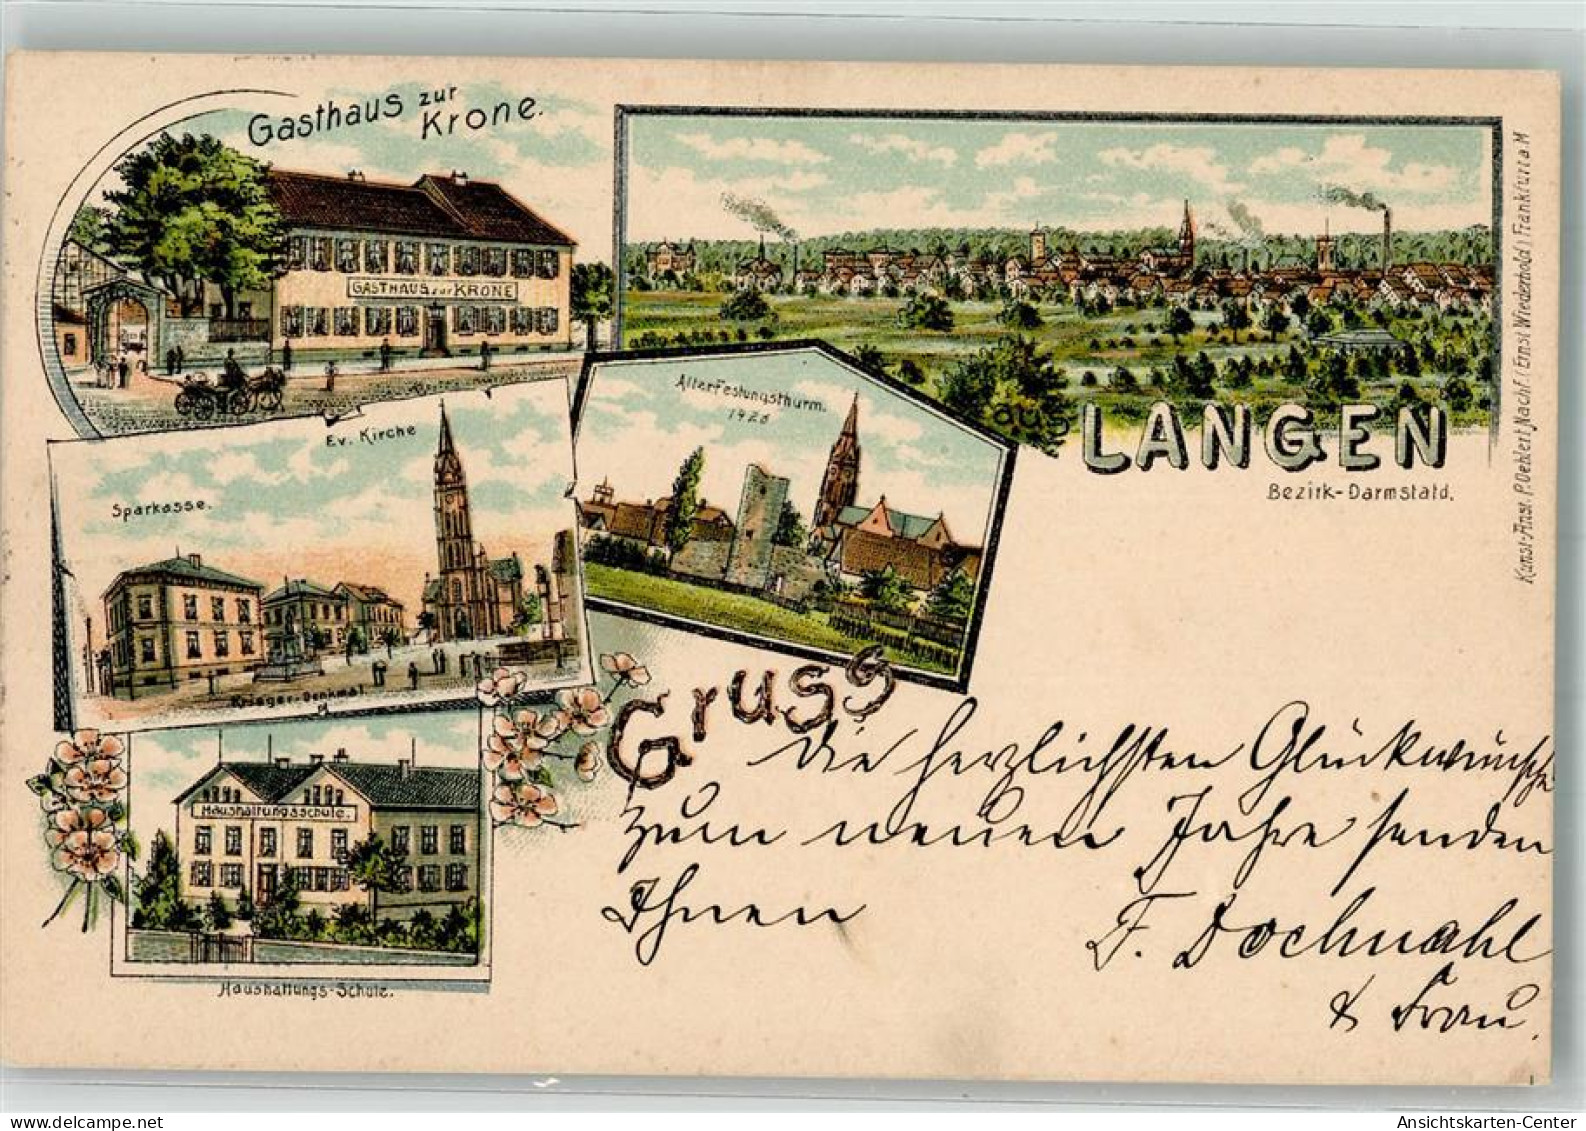 Gasthaus zur
Krone.
GASTHAUS zur KRONE
aus
LANGEN
Bezirk-Darmstatd.
Kunst-Anst. P. Oehlert Nachf. (Ernst Wiederhold) Frankfurt a. M
Alter Festungsthurm.
Ev. Kirche
Sparkasse.
Krieger-Denkmal
Haushaltungsschule.
Haushaltungs-Schule.
Gruss
die herzlichsten Glückwünsche
zum neuen Jahre senden
Ihnen
F. Dochnahl
& Frau.
Ansichtskarten-Center